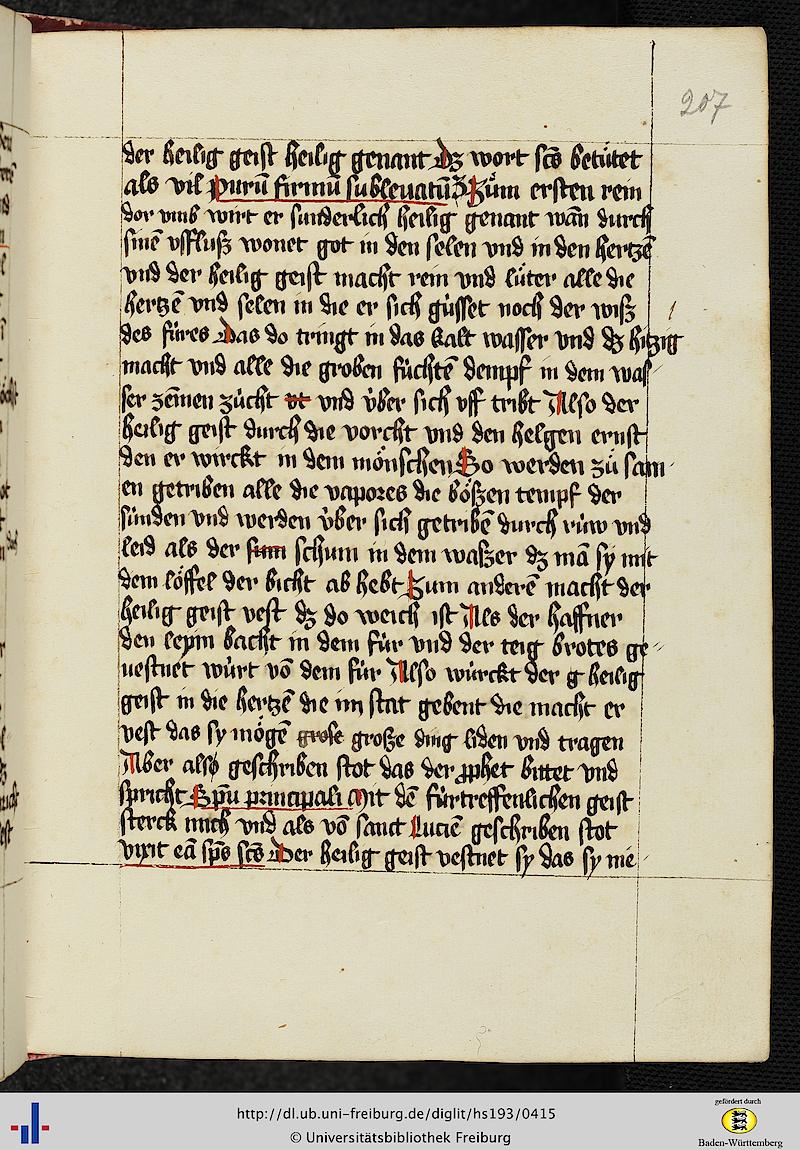 207
der heilig geist heilig genant Dz wort scs betútet
als vil Purū firmū subleuatū Zům ersten rein
dor vmb wirt er sunderlich heilig genant wān durch
sinē vsfluß wonet got in den selen vnd in den hertzē
vnd der heilig geist macht rein vnd lúter alle die
hertzē vnd selen in die er sich gússet noch der wiß
des fúres Das do tringt in das kalt wasser vnd dz hitzig
macht vnd alle die groben fúchtē dempf in dem was
ser zēmen zúcht vt vnd v́ber sich vff tribt Also der
heilig geist durch die vorcht vnd den helgen ernst
den er wirckt in dem mönschen So werden zů sam
en getriben alle die vapores die bößen tempf der
súnden vnd werden v́ber sich getribē durch rúw vnd
leid als der sum schum in dem waßer dz mā sy mit
dem löffel der bicht ab hebt Zum anderē macht der
heilig geist vest dz do weich ist Als der haffner
den leym bacht in dem fúr vnd der teig brotes ge
uestnet wúrt vō dem fúr Also wúrckt der g heilig
geist in die hertzē die im stat gebent die macht er
vest das sy mögē grose große ding liden vnd tragen
Aber also geschriben stot das der prphet bittet vnd
spricht Spū principali Mit dē fúrtreffenlichen geist
sterck mich vnd als vō sanct Luciē geschriben stot
vixit eā sps scs Der heilig geist vestnet sy das sy nie
http://dl.ub.uni-freiburg.de/diglit/hs193/0415
© Universitätsbibliothek Freiburg
gefördert durch
Baden-Württemberg